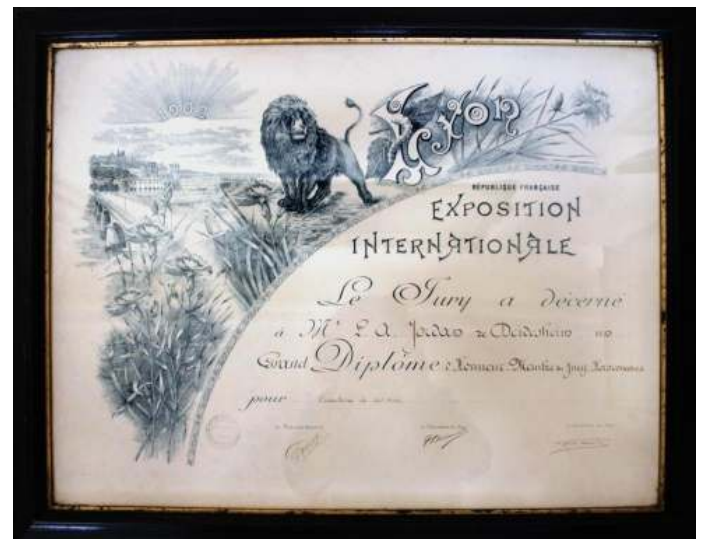 1902
Lyon
RÉPUBLIQUE FRANÇAISE
EXPOSITION
INTERNATIONALE
Le Jury a décerné
à Mr L. A. Jordan de Deidesheim un
Grand Diplôme d'Honneur Membre du Jury
pour